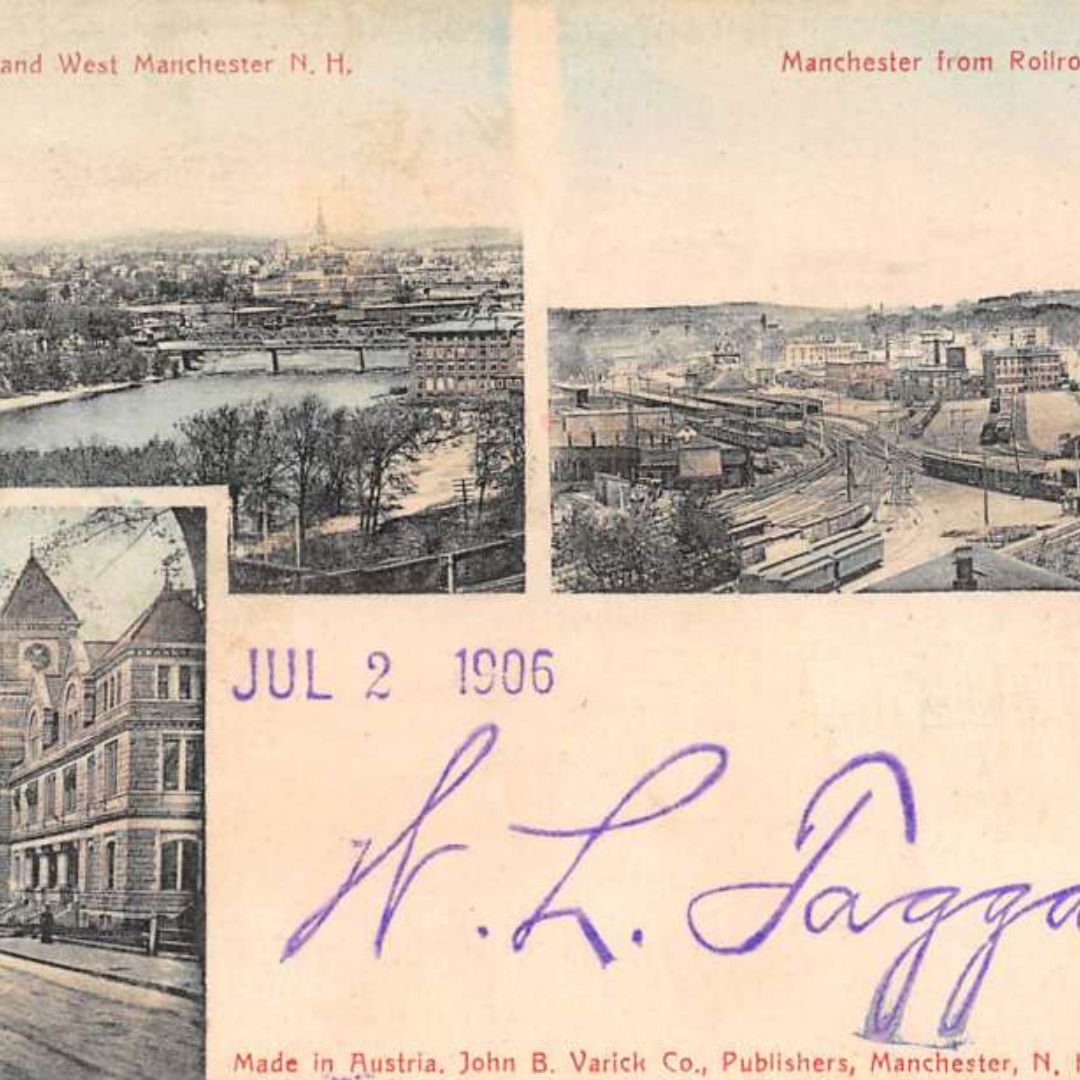 and West Manchester N. H.
Manchester from Roilro
JUL 2 1906
W. L. Tagga
Made in Austria. John B. Varick Co., Publishers, Manchester, N.